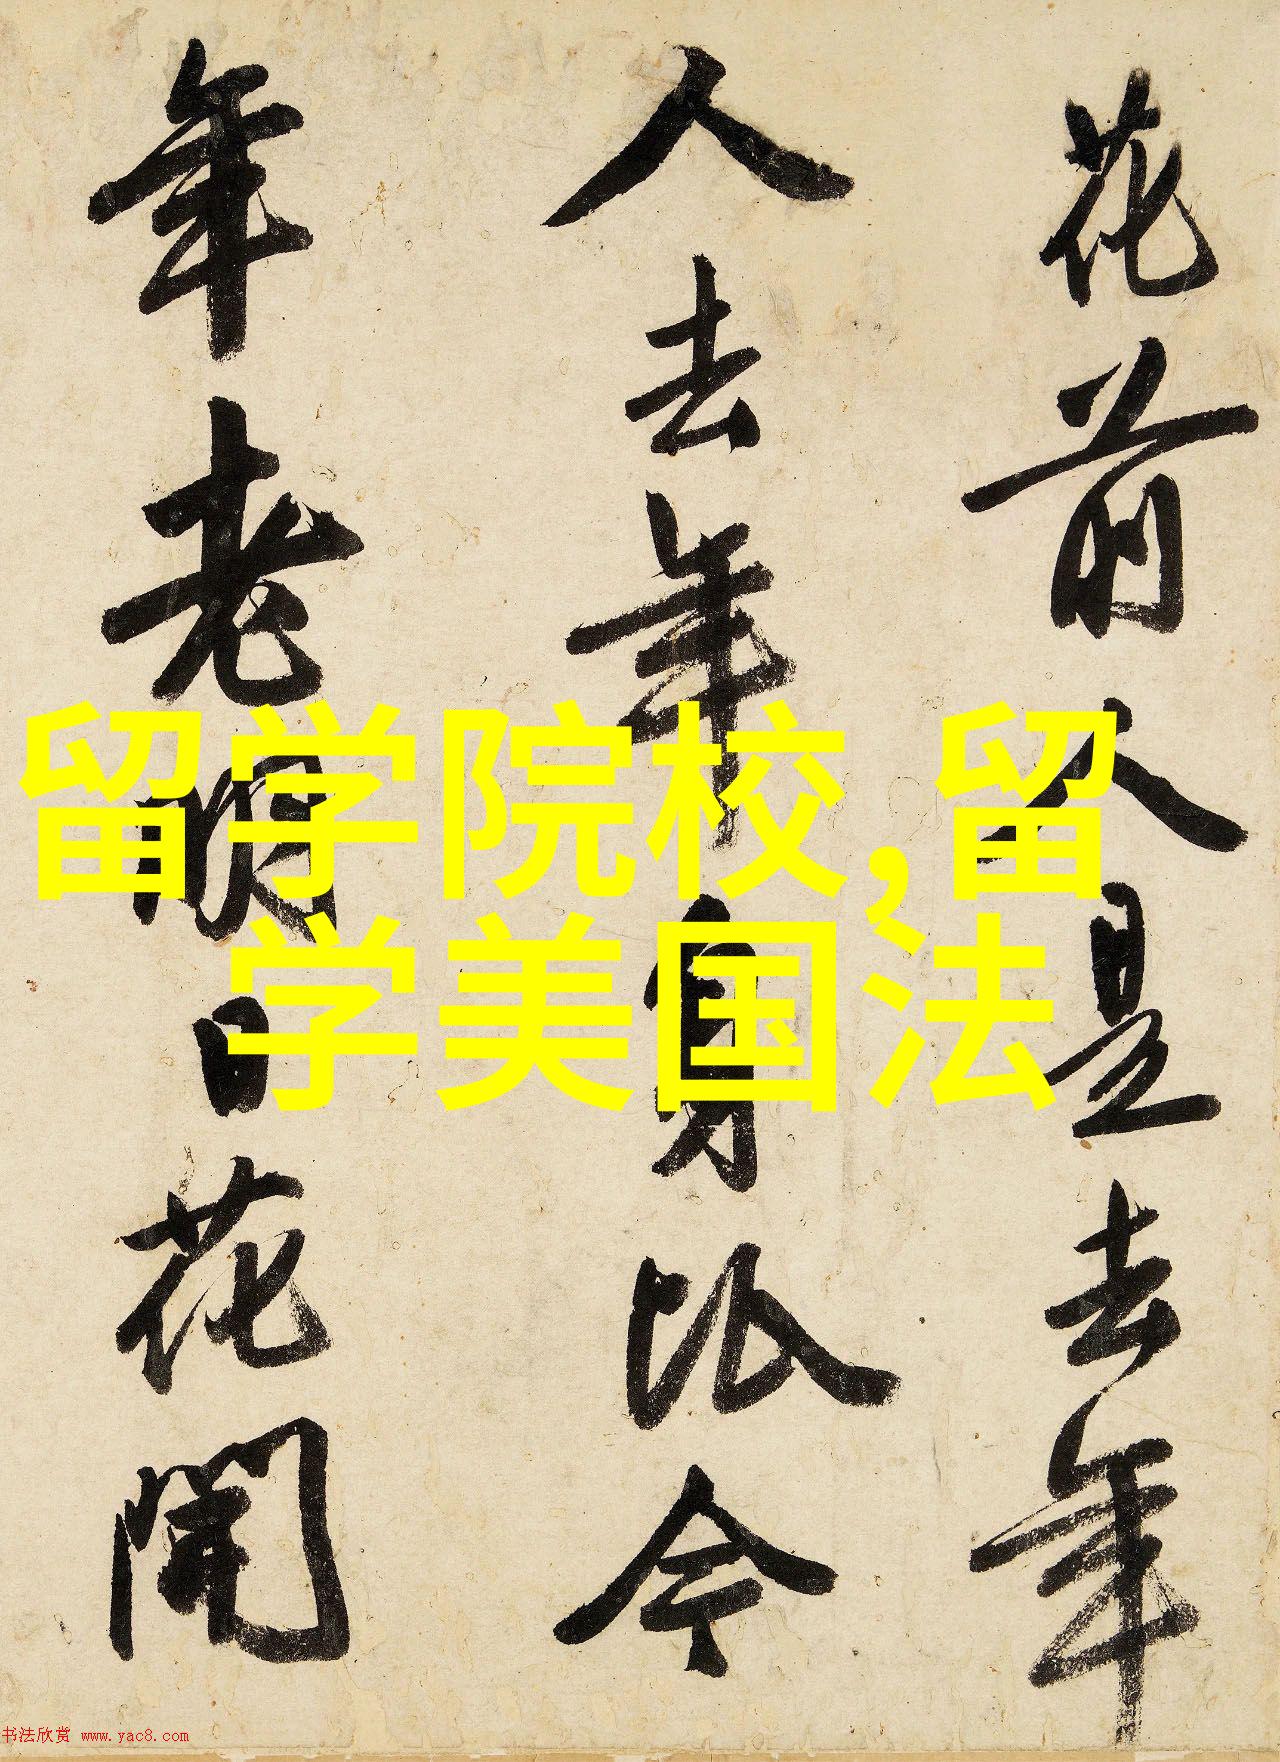 花前人是去年
人去年身比今
年老明日花開
留学院校,留
学美国法
书法欣赏 www.yac8.com